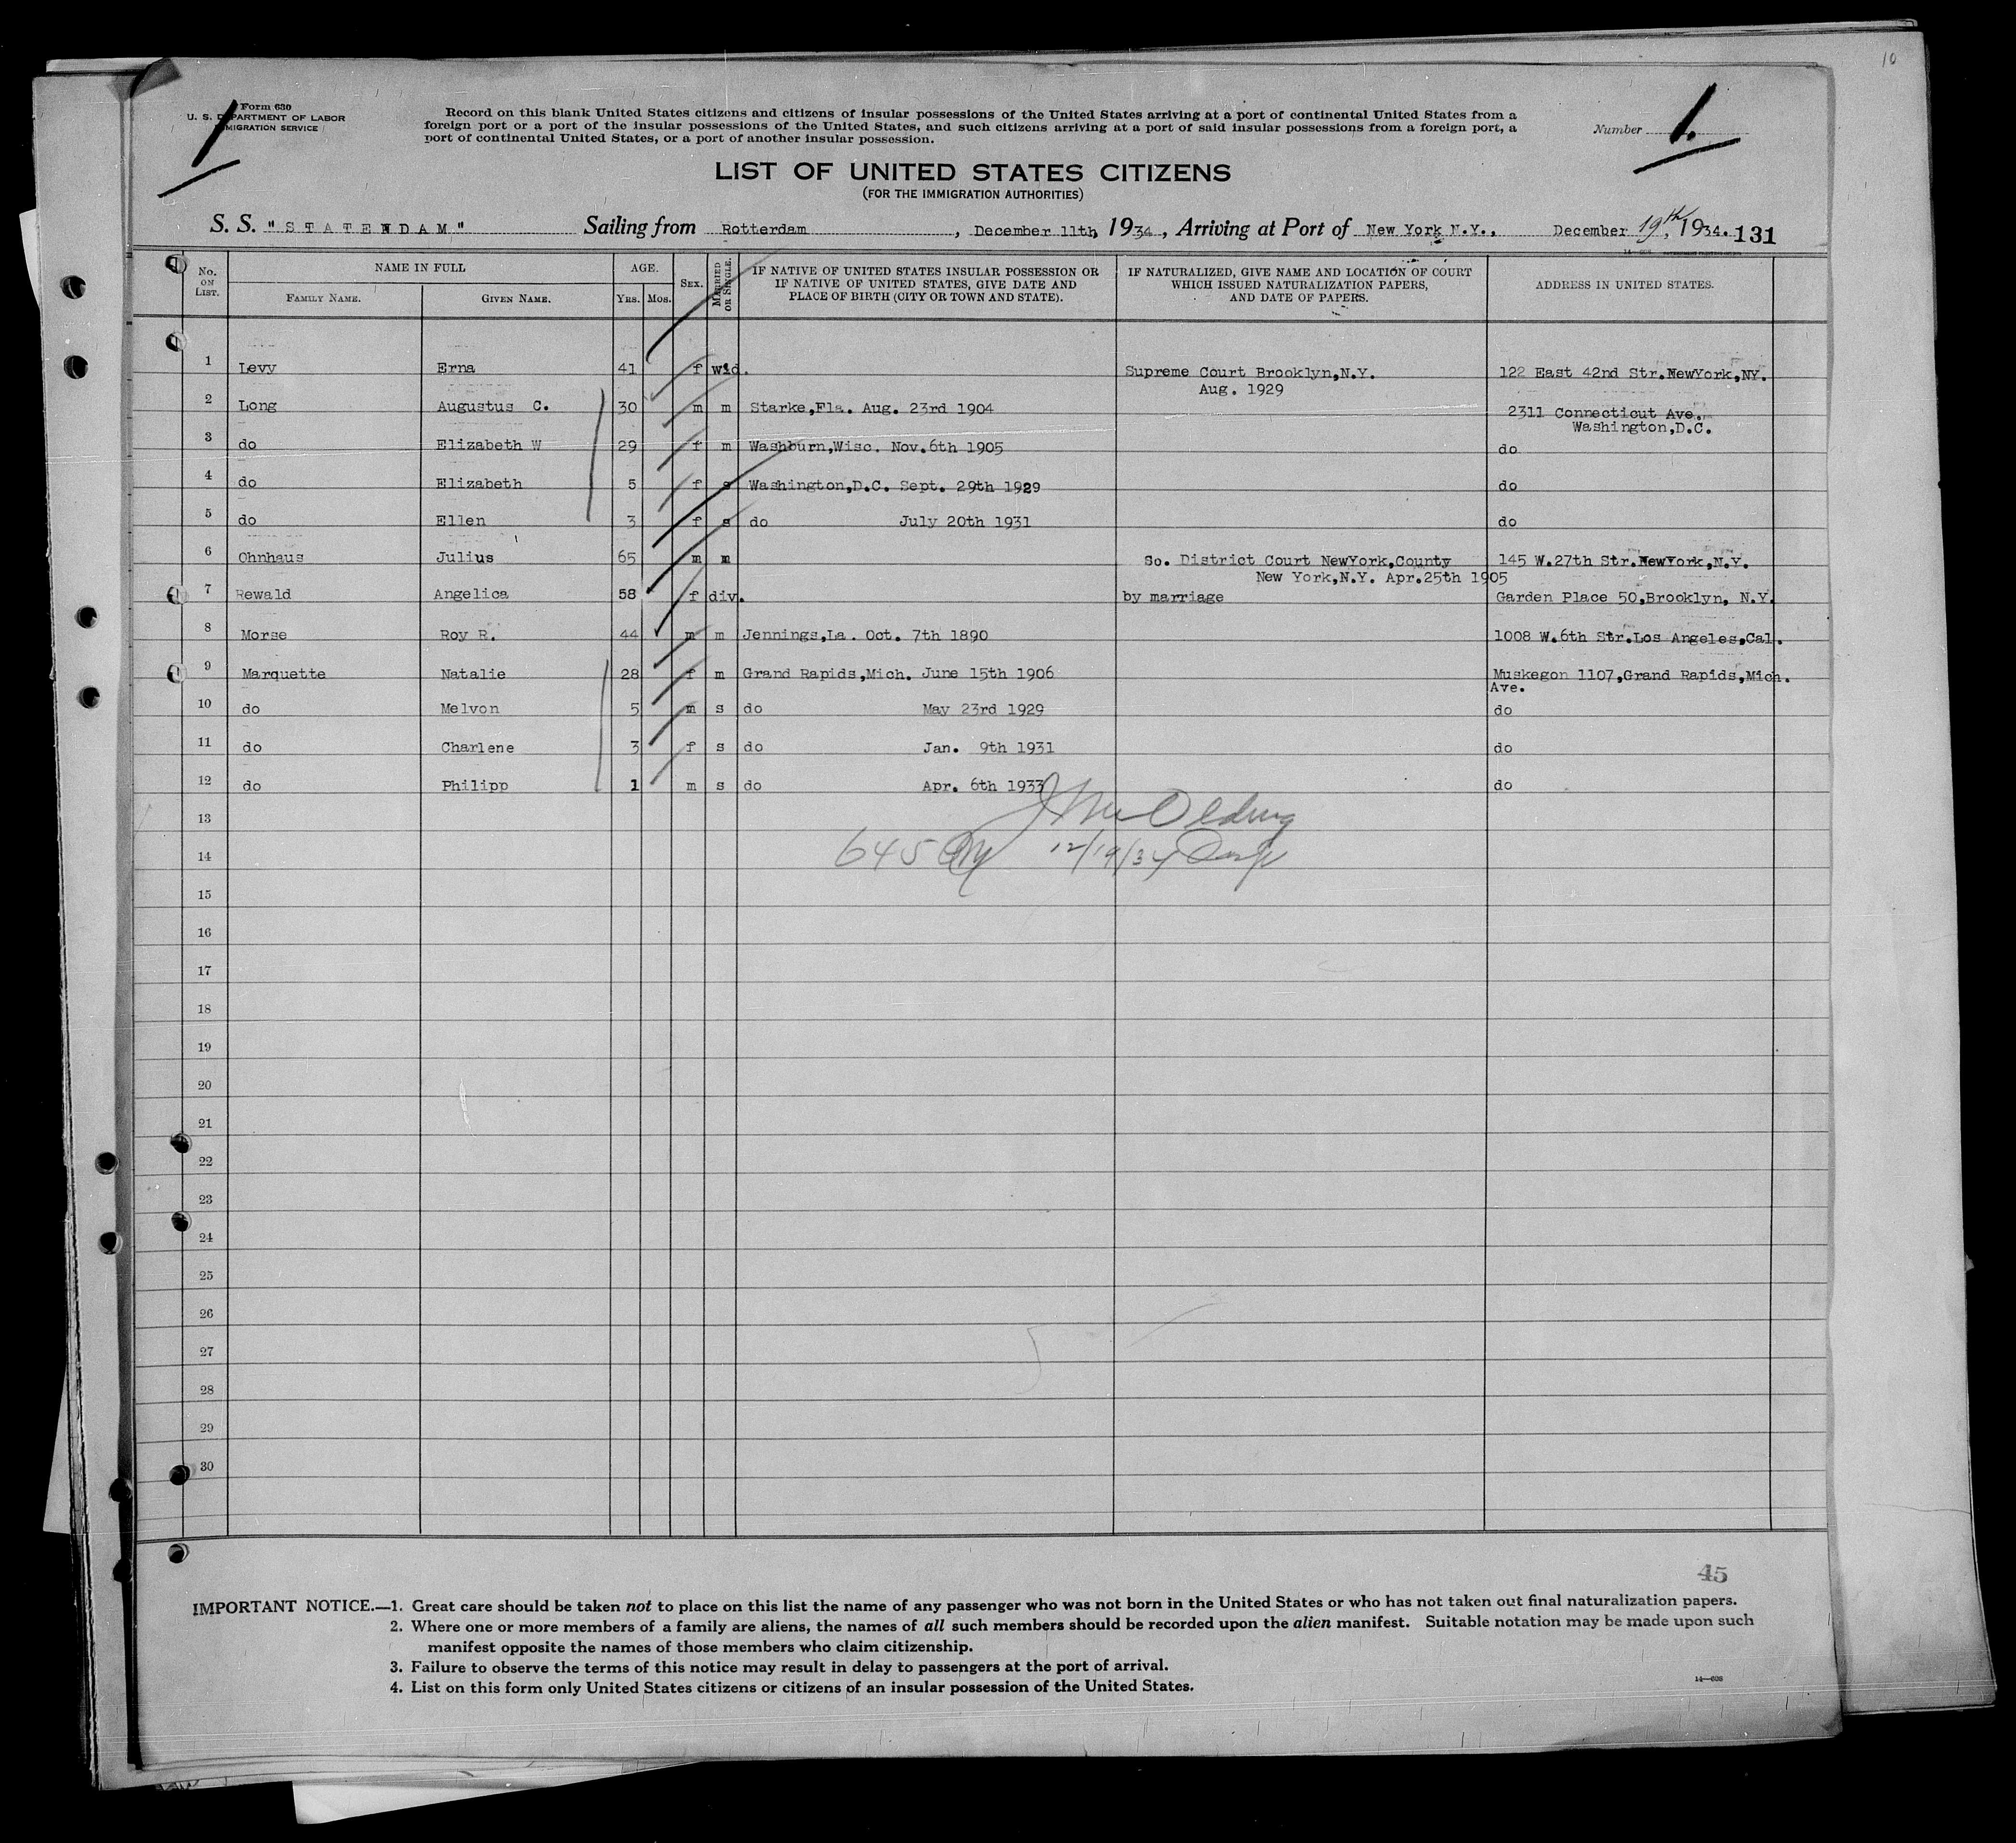 10
Form 630
U. S. DEPARTMENT OF LABOR
IMMIGRATION SERVICE
1
Record on this blank United States citizens and citizens of insular possessions of the United States arriving at a port of continental United States from a
foreign port or a port of the insular possessions of the United States, and such citizens arriving at a port of said insular possessions from a foreign port, a
port of continental United States, or a port of another insular possession.
Number 1.
LIST OF UNITED STATES CITIZENS
(FOR THE IMMIGRATION AUTHORITIES)
S. S. "STATENDAM" Sailing from Rotterdam, December 11th, 1934, Arriving at Port of New York N.Y., December 19th, 1934. 131
14—608
No. ON LIST. NAME IN FULL FAMILY NAME. GIVEN NAME. AGE. YRS. MOS. SEX. MARRIED OR SINGLE. IF NATIVE OF UNITED STATES INSULAR POSSESSION OR IF NATIVE OF UNITED STATES, GIVE DATE AND PLACE OF BIRTH (CITY OR TOWN AND STATE). IF NATURALIZED, GIVE NAME AND LOCATION OF COURT WHICH ISSUED NATURALIZATION PAPERS, AND DATE OF PAPERS. ADDRESS IN UNITED STATES.
1 Levy Erna 41 f wid. Supreme Court Brooklyn,N.Y. 122 East 42nd Str.NewYork,NY.
Aug. 1929
2 Long Augustus C. 30 m m Starke,Fla. Aug. 23rd 1904 2311 Connecticut Ave.
Washington,D.C.
3 do Elizabeth W 29 f m Washburn,Wisc. Nov.6th 1905 do
4 do Elizabeth 5 f s Washington,D.C. Sept. 29th 1929 do
5 do Ellen 3 f s do July 20th 1931 do
6 Ohnhaus Julius 65 m m So. District Court NewYork,County 145 W.27th Str.NewYork,N.Y.
New York,N.Y. Apr.25th 1905
7 Rewald Angelica 58 f div. by marriage Garden Place 50,Brooklyn, N.Y.
8 Morse Roy R. 44 m m Jennings,La. Oct. 7th 1890 1008 W.6th Str.Los Angeles,Cal.
9 Marquette Natalie 28 f m Grand Rapids,Mich. June 15th 1906 Muskegon 1107,Grand Rapids,Mich.
Ave.
10 do Melvon 5 m s do May 23rd 1929 do
11 do Charlene 3 f s do Jan. 9th 1931 do
12 do Philipp 1 m s do Apr. 6th 1933 do
13
14 645 12/19/34
15
16
17
18
19
20
21
22
23
24
25
26
27
28
29
30
45
IMPORTANT NOTICE.—1. Great care should be taken not to place on this list the name of any passenger who was not born in the United States or who has not taken out final naturalization papers.
2. Where one or more members of a family are aliens, the names of all such members should be recorded upon the alien manifest. Suitable notation may be made upon such
manifest opposite the names of those members who claim citizenship.
3. Failure to observe the terms of this notice may result in delay to passengers at the port of arrival.
4. List on this form only United States citizens or citizens of an insular possession of the United States.
14—608